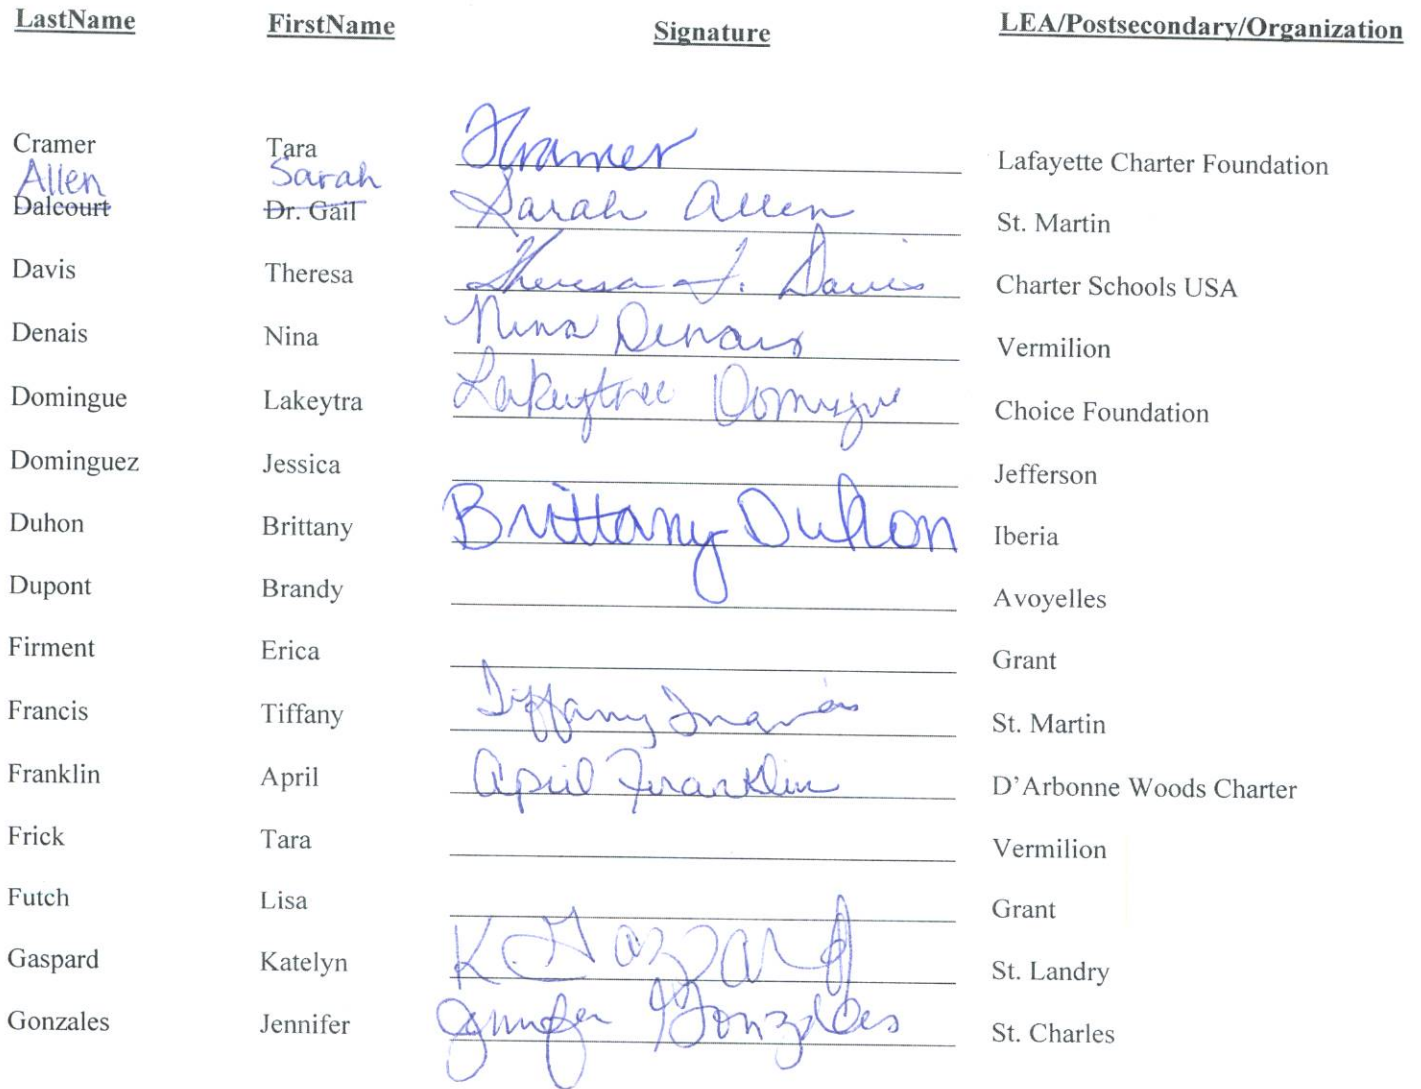 LastName FirstName Signature LEA/Postsecondary/Organization
Cramer Tara TCramer Lafayette Charter Foundation
Allen Sarah
Dalcourt Dr. Gail Sarah Allen St. Martin
Davis Theresa Theresa J. Davis Charter Schools USA
Denais Nina Nina Denais Vermilion
Domingue Lakeytra Domingue Choice Foundation
Dominguez Jessica Jefferson
Duhon Brittany Brittany Duhon Iberia
Dupont Brandy Avoyelles
Firment Erica Grant
Francis Tiffany Tiffany Francis St. Martin
Franklin April April Franklin D'Arbonne Woods Charter
Frick Tara Vermilion
Futch Lisa Grant
Gaspard Katelyn K. St. Landry
Gonzales Jennifer Jennifer Gonzales St. Charles